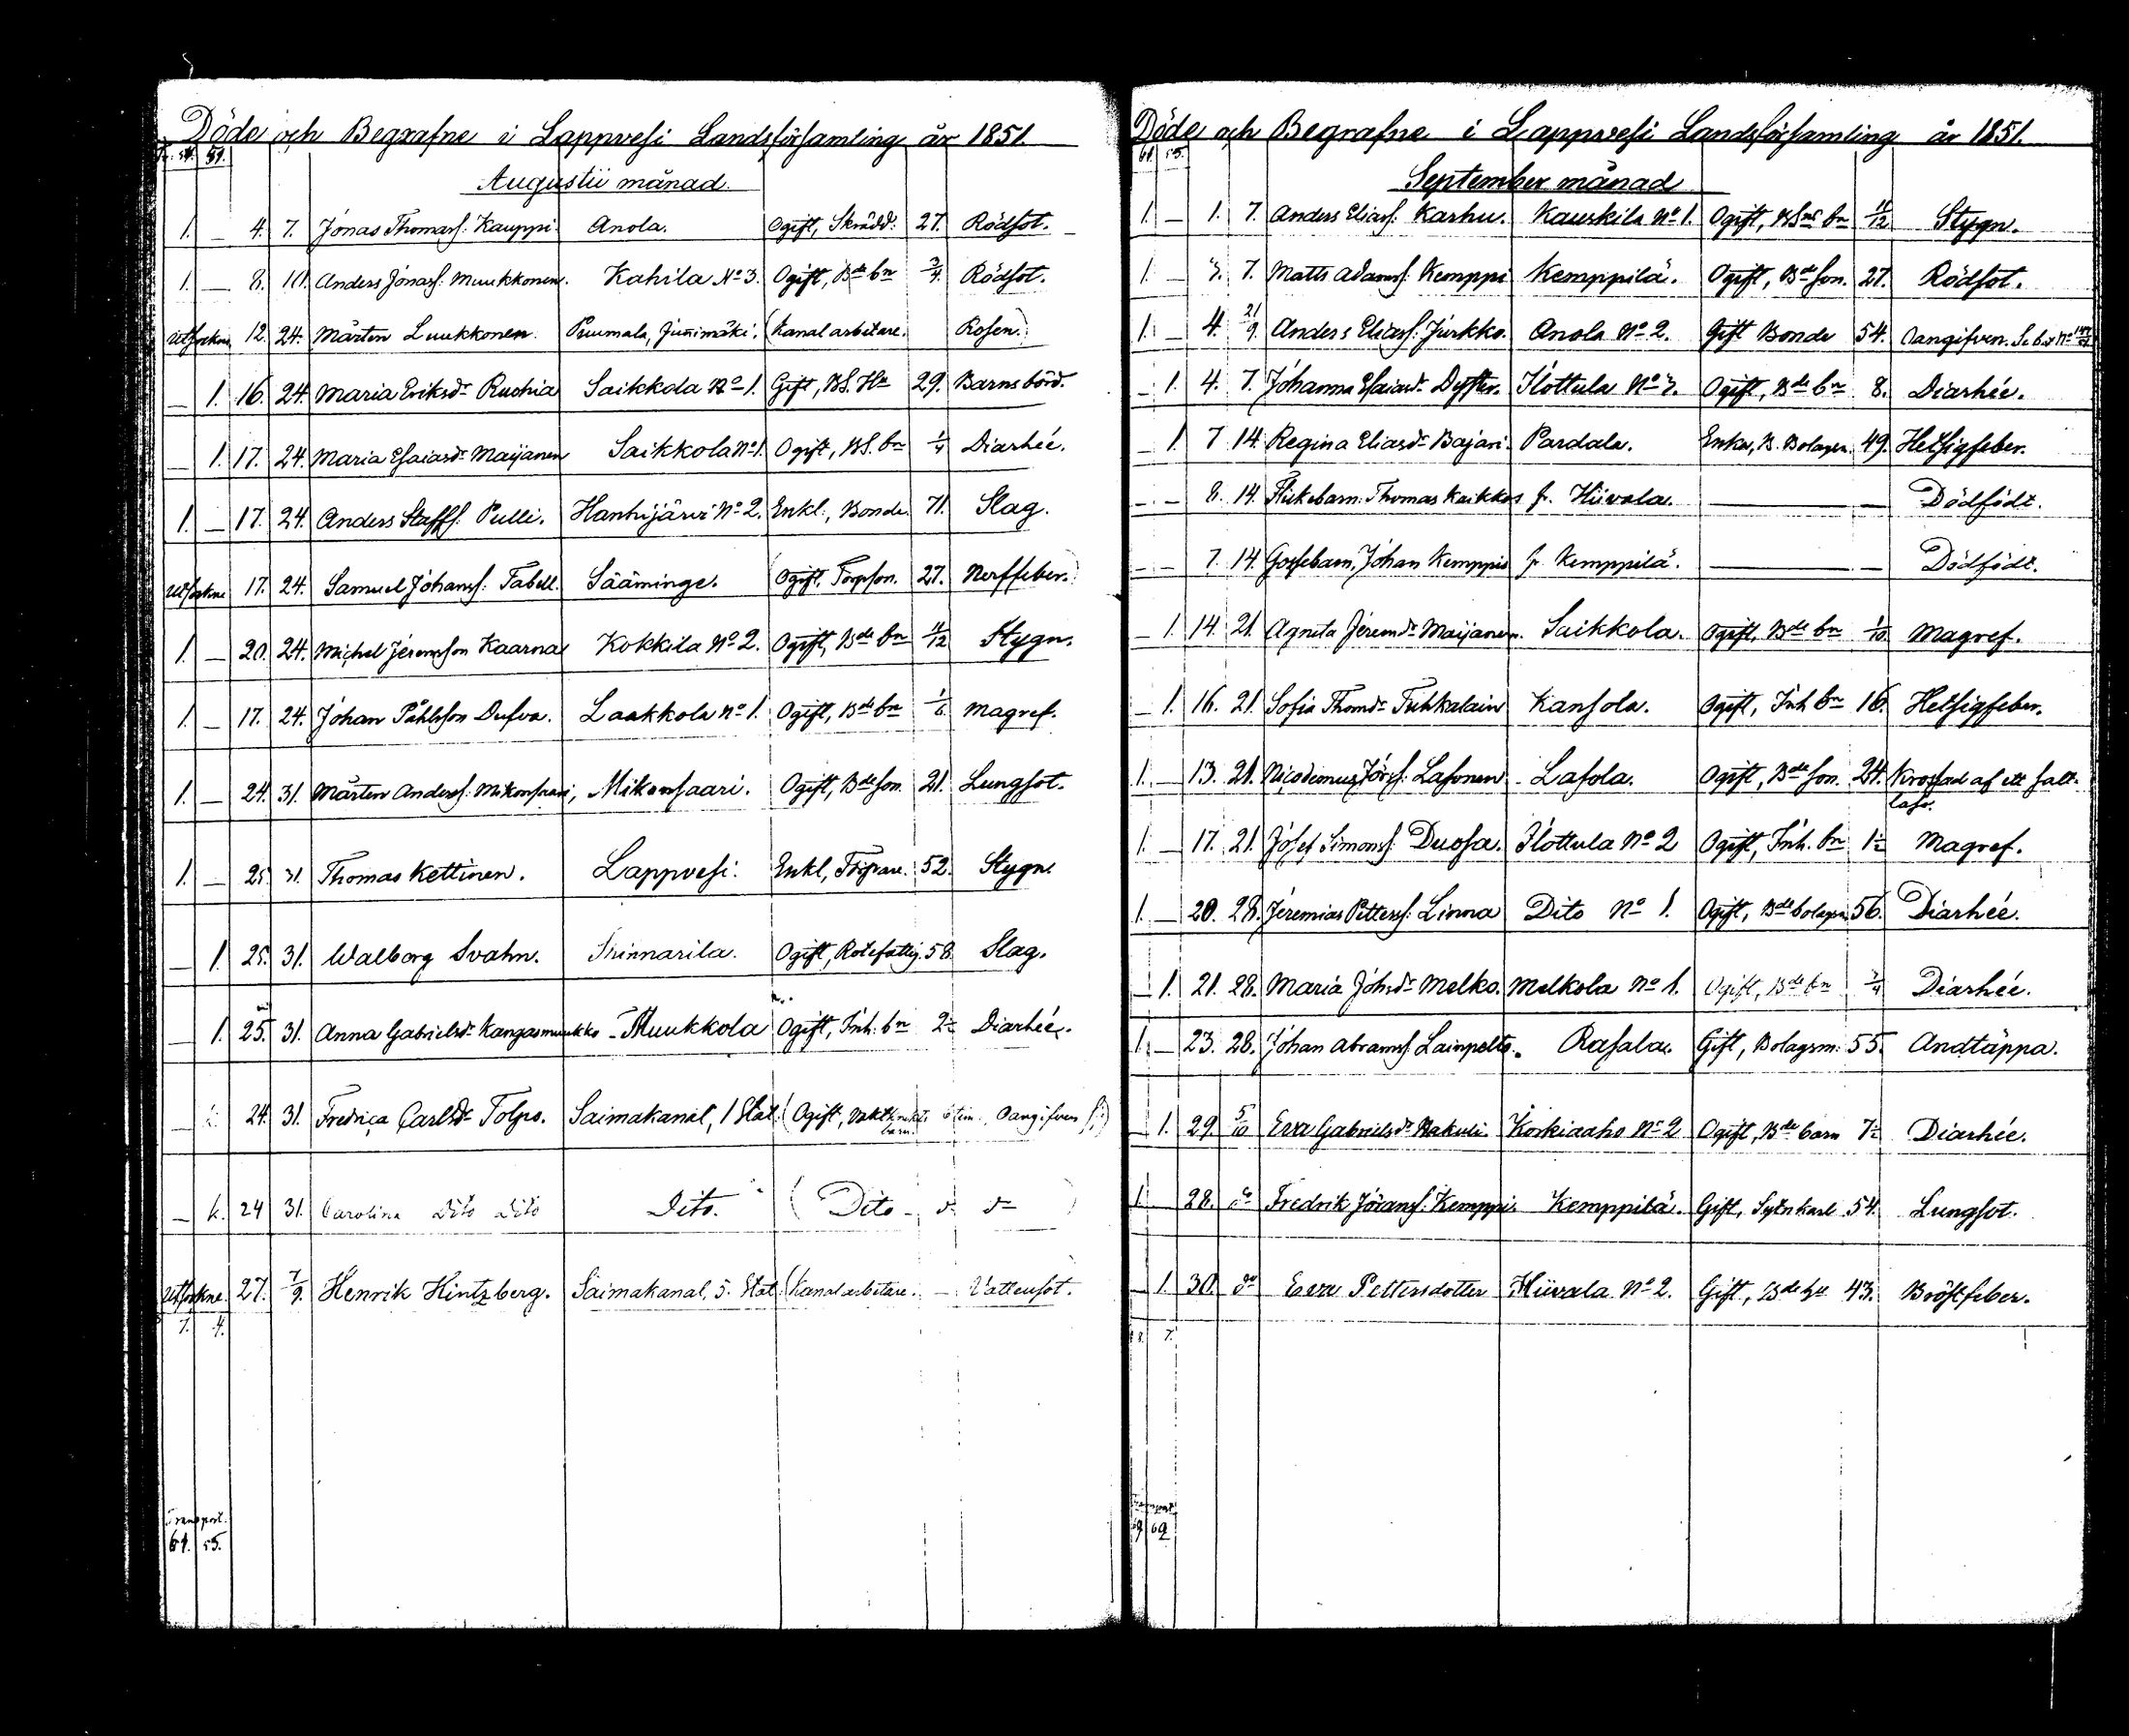 Döde och Begrafne i Lappvesi Landsförsamling år 1851.
Tr: 54. 51.
Augustii månad.
1. — 4. 7. Jonas Thomass: Kauppi Anola. Ogift, Skrädd: 27. Rödsot.
1. — 8. 10. Anders Jonass. Muukkonen. Kahila No 3. Ogift, Bde bn 3/4. Rödsot.
Utsockne 12. 24. Mårten Luukkonen. Puumala, Junimäki. (Kanalarbetare. Rosen.)
— 1. 16. 24. Maria Eriksdr Ruohia Saikkola No 1. Gift, BS. Hu 29. Barnsbörd.
— 1. 17. 24. Maria Esaiasdr Maijanen Saikkola No 1. Ogift, BS. bn 1/4 Diarhée.
1. — 17. 24. Anders Staffs. Pulli. Hanhijärvi No 2. Enkl., Bonde. 71. Slag.
Utsockne 17. 24. Samuel Johanss: Tabell. Sääminge. (Ogift, Torpson. 27. Nerffeber.)
1. — 20. 24. Michel Jeremson Kaarna Kokkila No 2. Ogift, Bde bn 11/12 Stygn.
1. — 17. 24. Johan Påhlsson Dufva. Laakkola No 1. Ogift, Bde bn 1/6. Magref.
1. — 24. 31. Mårten Anderss. Mikonsaari, Mikonsaari. Ogift, Bde son. 21. Lungsot.
1. — 25. 31. Thomas Kettinen. Lappvesi. Enkl, Torpare. 52. Stygn.
— 1. 25. 31. Walborg Svahn. Skinnarila. Ogift, Rotefattig. 58. Slag.
— 1. 25. 31. Anna Gabrielsdr Kangasmuukko Muukkola Ogift, Inh. bn 2 Diarhée.
— 24. 31. Fredrica Carlsdr Tolpo. Saimakanal, 1 Stat. (Ogift, barn. 6 tim. Oangifven
— 24 31. Carolina Dito Dito Dito. (Dito
Utsockne. 27. 7/9. Henrik Hintzberg. Saimakanal, 5. Stat. (Kanalarbetare. — Vattensot.
7. 4.
Transport.
61. 55.
Döde och Begrafne i Lappvesi Landsförsamling år 1851.
61. 55.
September månad
1. — 1. 7. Anders Eliass. Karhu. Kauskila No 1. Ogift, bn 11/12 Stygn.
1. — 3. 7. Matts Adamss. Kemppi Kemppilä. Ogift, Bde Son. 27. Rödsot.
1. 4. 21/9. Anders Eliass. Jurkko. Anola No 2. Gift Bonde 54. Oangifven.
— 1. 4. 7. Johanna Esaiasdr Dyster. Ilottula No 3. Ogift, Bde bn 8. Diarhée.
— 1. 7 14. Regina Eliasdr Bajari. Pardala. Enka, B. Bolagsn. 49. Hetsigfeber.
— — 8. 14. Flickebarn. Thomas Kaikkos fr. Hiivola. — — Dödfödt.
— — 7. 14. Gossebarn, Johan Kemppis fr. Kemppilä. — — Dödfödt.
— 1. 14. 21. Agneta Jeremdr Maijanen. Saikkola. Ogift, Bde bn 1/10 Magref.
— 1. 16. 21. Sofia Thomdr Tuhkalain Kansola. Ogift, Inh bn 16. Hetsigfeber.
1. — 13. 21. Nicodemus Lasonen Lasola. Ogift, Bde son. 24. Krossad af ett
lass.
1. — 17. 21. Josef Simonss. Duosa. Ilottula No 2 Ogift, Inh. bn 1 Magref.
1. — 20. 28. Jeremias Petterss. Linna Dito No 1. Ogift, Bde bolagsm 56. Diarhée.
— 1. 21. 28. Maria Johsdr Melko. Melkola No 1. Ogift, Bde bn 3/4 Diarhée.
1. — 23. 28. Johan Abramss. Lainpelto. Rasala. Gift, Bolagsm. 55. Andtäppa.
— 1. 29. 5/10 Eva Gabrielsdr Rakuli. Korkiaaho No 2 Ogift, Bde barn 7 Diarhée.
1. 28. do Fredrik Jöranss. Kemppi. Kemppilä. Gift, Sytnkarl 54. Lungsot.
— 1. 30. do Eva Pettersdotter Hiivala No 2. Gift, Bde hu 43. Bröstfeber.
8. 7.
Transport.
69 62